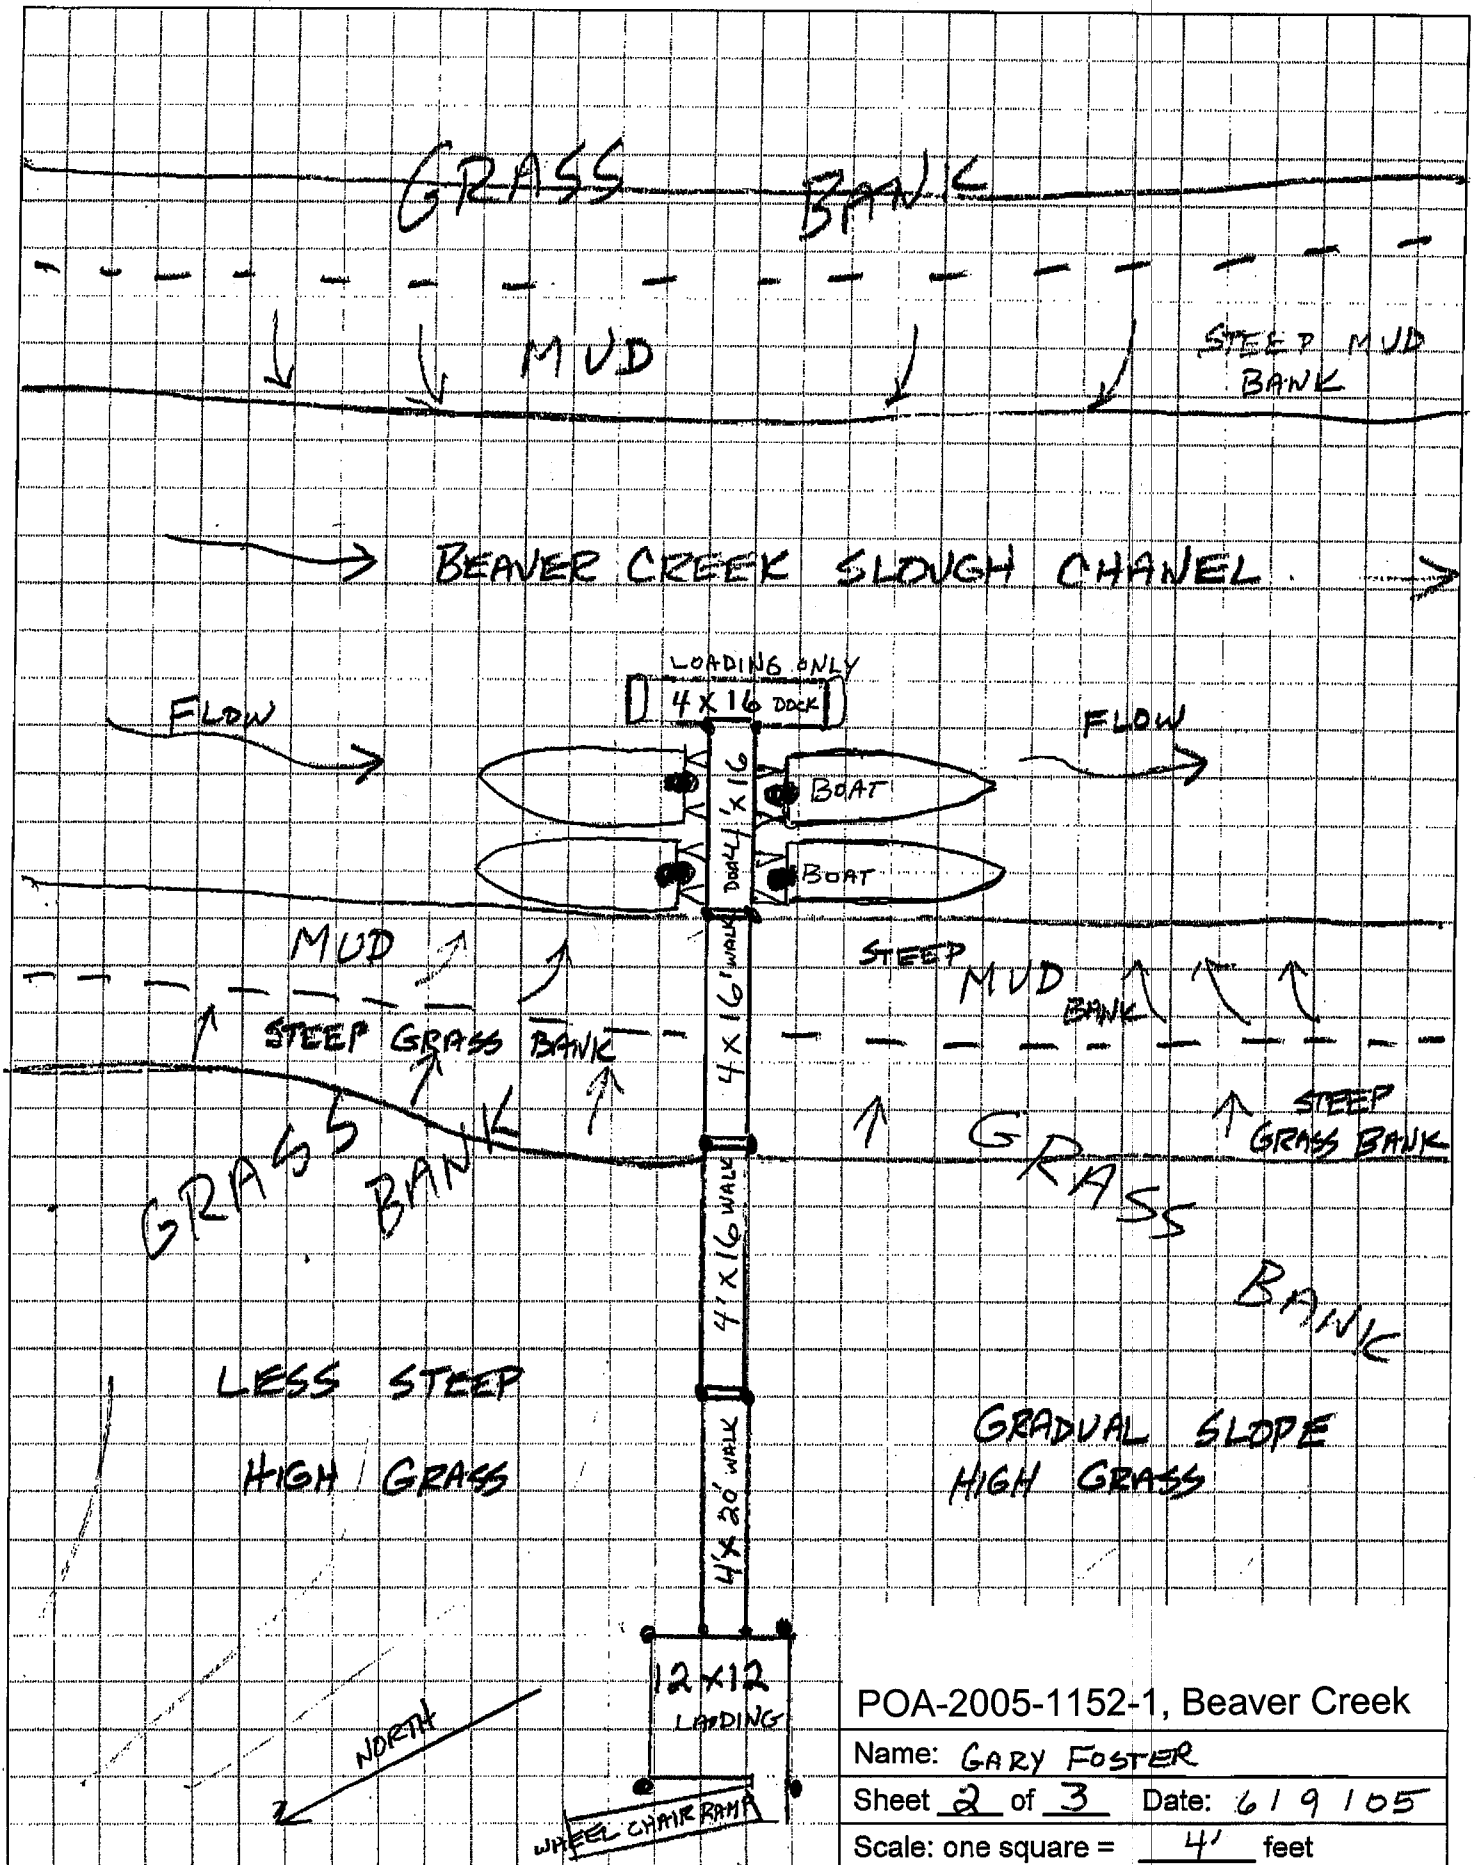 GRASS BANK
MUD
STEEP MUD
BANK
BEAVER CREEK SLOUGH CHANEL
LOADING ONLY
4 X 16 DOCK
FLOW
FLOW
4' X 16
BOAT
BOAT
MUD
4 X 16' WALK
STEEP
MUD
BANK
STEEP GRASS BANK
STEEP
GRASS BANK
GRASS
BANK
GRASS
BANK
4' X 16 WALK
LESS STEEP
HIGH GRASS
GRADUAL SLOPE
HIGH GRASS
4' X 20' WALK
12 X 12
LANDING
NORTH
WHEEL CHAIR RAMP
POA-2005-1152-1, Beaver Creek
Name: GARY FOSTER
Sheet 2 of 3 Date: 6 / 9 / 05
Scale: one square = 4' feet